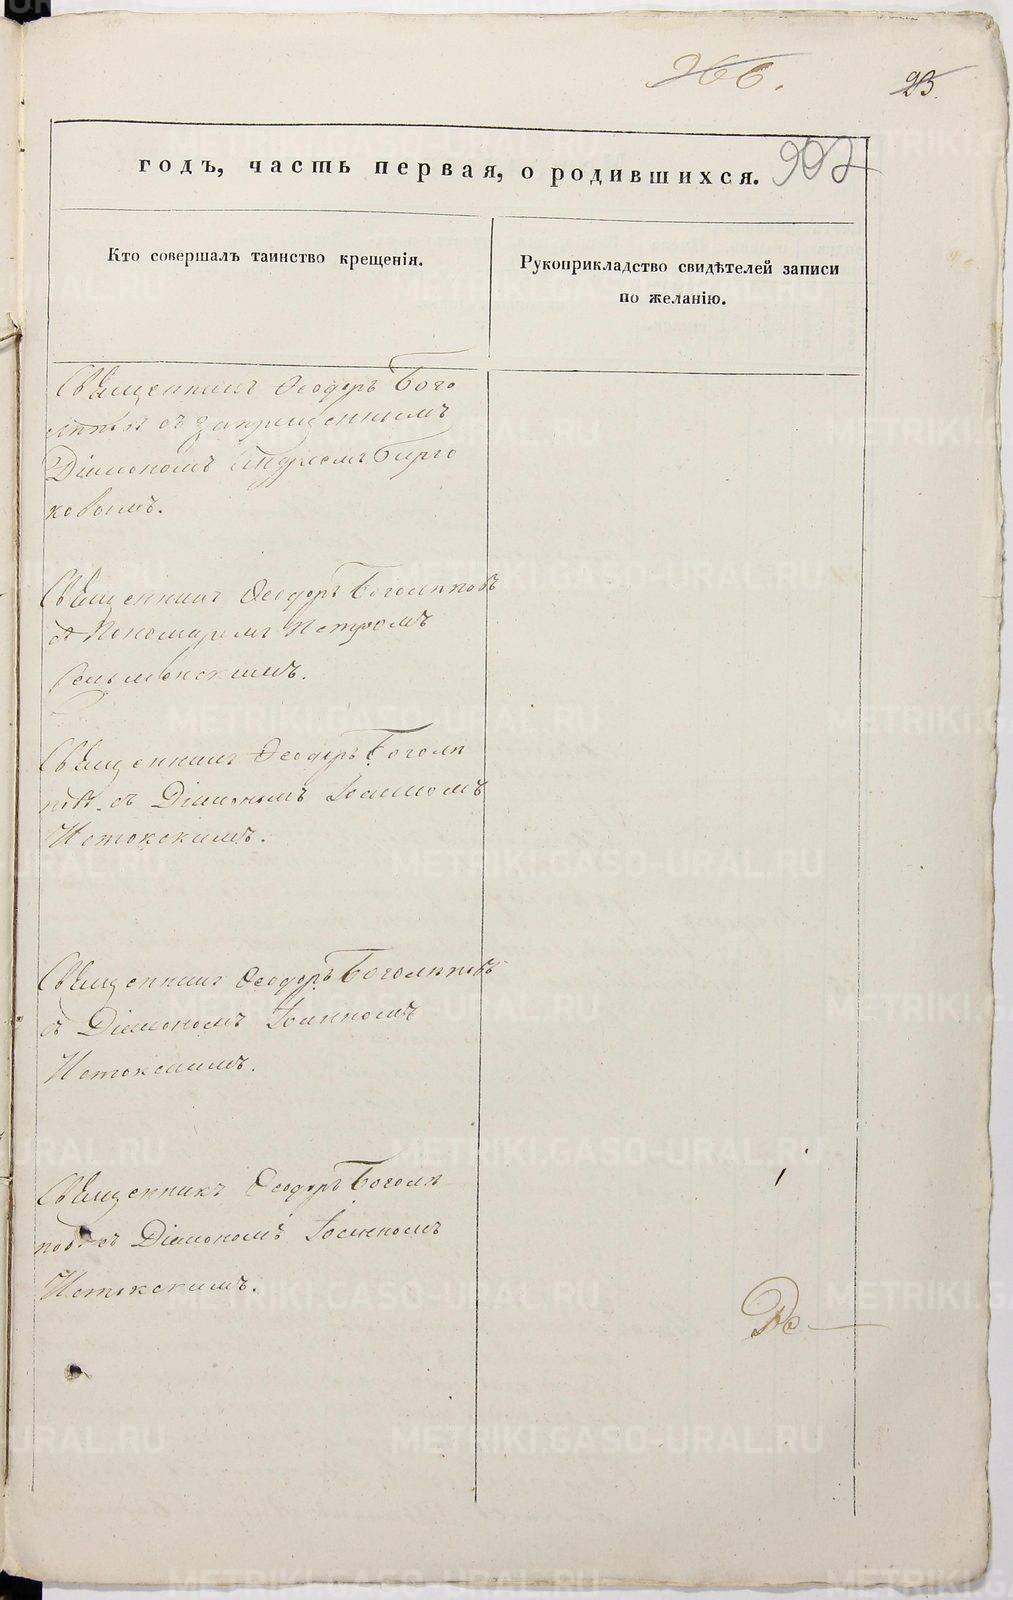 266.
23.
годъ, часть первая, о родившихся.
992
Кто совершалъ таинство крещенія.
Рукоприкладство свидѣтелей записи
по желанію.
Священникъ Ѳеодоръ Бого
лѣповъ съ запрещеннымъ
Діакономъ Андреемъ Бирю
ковымъ.
Священникъ Ѳеодоръ Боголѣповъ
съ Пономаремъ Петромъ
Священникъ Ѳеодоръ Боголѣ
повъ съ Діакономъ Іоанномъ
Истокскимъ.
Священникъ Ѳеодоръ Боголѣповъ
съ Діакономъ Іоанномъ
Истокскимъ.
Священникъ Ѳеодоръ Боголѣ
повъ съ Діакономъ Іоанномъ
Истокскимъ.
METRIKI.GASO-URAL.RU